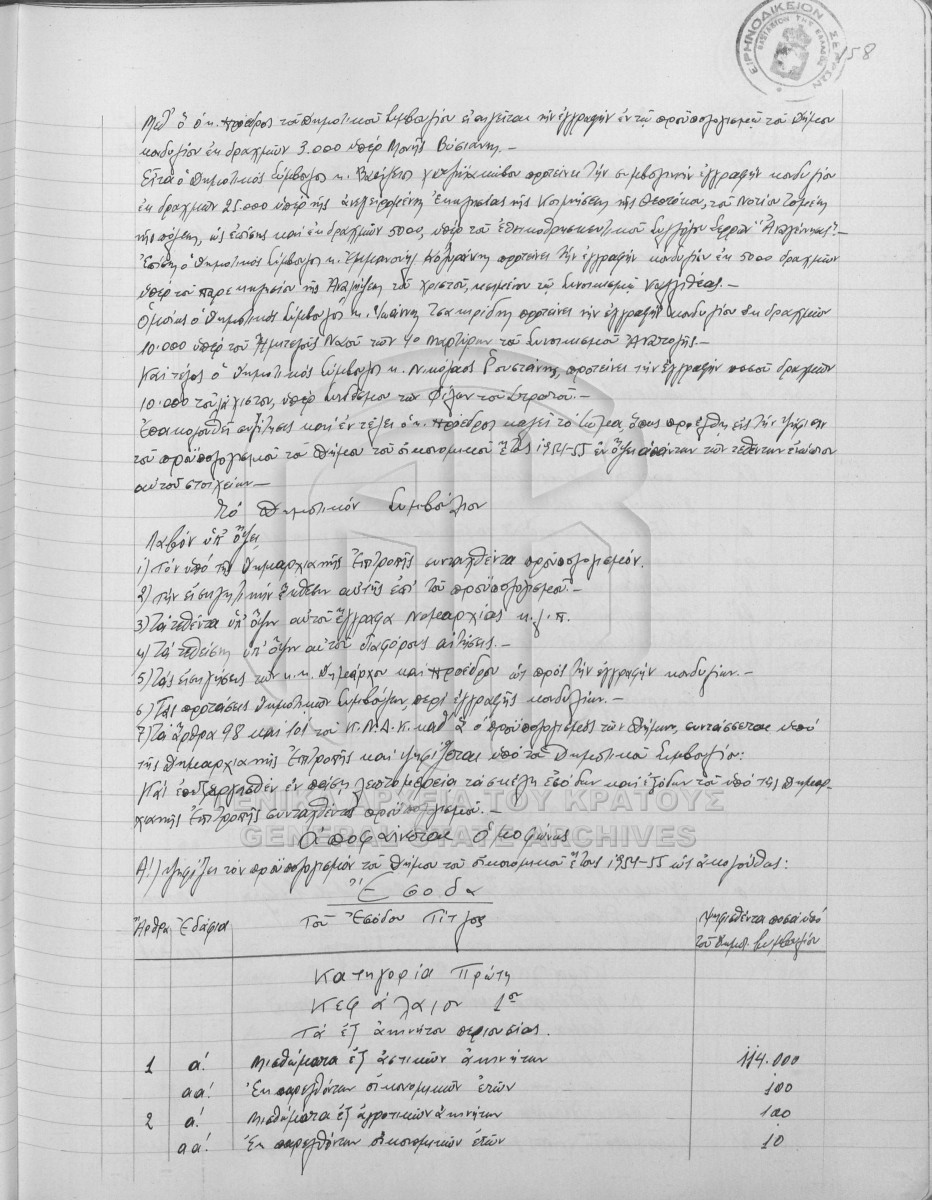 ΕΙΡΗΝΟΔΙΚΕΙΟΝ ΣΕΡΡΩΝ
ΒΑΣΙΛΕΙΟΝ ΤΗΣ ΕΛΛΑΔΟΣ
158
Μεθ' ὅ ὁ κ. Πρόεδρος τοῦ Δημοτικοῦ Συμβουλίου εἰσηγεῖται τήν ἐγγραφήν ἐν τῷ προϋπολογισμῷ τοῦ Δήμου
κονδυλίου ἐκ δραχμῶν 3.000 ὑπέρ Μονῆς Βύσιανης.—
Εἶτα ὁ Δημοτικός Σύμβουλος κ. Βασίλειος προτείνει τήν συμβολικήν ἐγγραφήν κονδυλίου
ἐκ δραχμῶν 25.000 ὑπέρ τῆς ἀνεγειρομένης Ἐκκλησίας τῆς Κοιμήσεως τῆς Θεοτόκου, τοῦ Νοτίου Τομέως
τῆς πόλεως, ὡς ἐπίσης καί ἐκ δραχμῶν 5000, ὑπέρ τοῦ Ἐθνικοθρησκευτικοῦ Συλλόγου Σερρῶν
Ἐπίσης ὁ Δημοτικός Σύμβουλος κ. Ἐμμανουήλ προτείνει τήν ἐγγραφήν κονδυλίου ἐκ 5000 δραχμῶν
ὑπέρ τοῦ παρεκκλησίου τῆς Ἀναλήψεως τοῦ Χριστοῦ, κειμένου τῷ Συνοικισμῷ
Ὁμοίως ὁ Δημοτικός Σύμβουλος κ. Ἰωάννης Τσακιρίδης προτείνει τήν ἐγγραφήν κονδυλίου ἐκ δραχμῶν
10.000 ὑπέρ τοῦ Ἡμιτελοῦς Ναοῦ τῶν 40 Μαρτύρων τοῦ Συνοικισμοῦ Ἀνατολῆς.—
Καί τέλος ὁ Δημοτικός Σύμβουλος κ. Νικόλαος Ρουστάνης, προτείνει τήν ἐγγραφήν ποσοῦ δραχμῶν
10.000 τοὐλάχιστον, ὑπέρ Συνδέσμου τῶν Φίλων τοῦ Στρατοῦ.—
Ἐπακολουθεῖ συζήτησις καί ἐν τέλει ὁ κ. Πρόεδρος καλεῖ τό Σῶμα, ὅπως προέλθῃ εἰς τήν ψήφισιν
τοῦ προϋπολογισμοῦ τοῦ Δήμου τοῦ οἰκονομικοῦ ἔτους 1954-55 ἐν ὄψει ἁπάντων τῶν τεθέντων ἐνώπιον
αὐτοῦ στοιχείων.—
Τό Δημοτικόν Συμβούλιον
Λαβόν ὑπ' ὄψει
1) Τόν ὑπό τῆς Δημαρχιακῆς Ἐπιτροπῆς συνταχθέντα προϋπολογισμόν.
2) τήν εἰσηγητικήν ἔκθεσιν αὐτῆς ἐπί τοῦ προϋπολογισμοῦ.—
3) Τά τεθέντα ὑπ' ὄψιν αὐτοῦ ἔγγραφα Νομαρχίας κ.λ.π.
4) Τάς τεθείσας ὑπ' ὄψιν αὐτοῦ διαφόρους αἰτήσεις.—
5) Τάς εἰσηγήσεις τῶν κ.κ. Δημάρχου καί Προέδρου ὡς πρός τήν ἐγγραφήν κονδυλίων.—
6) Τάς προτάσεις Δημοτικῶν Συμβούλων, περί ἐγγραφῆς κονδυλίων.—
7) Τά ἄρθρα 98 καί 101 τοῦ Κ.Δ.Α.Κ. καθ' ἅ ὁ προϋπολογισμός τῶν Δήμων, συντάσσεται ὑπό
τῆς Δημαρχιακῆς Ἐπιτροπῆς καί ψηφίζεται ὑπό τοῦ Δημοτικοῦ Συμβουλίου:
Καί ἐπεξεργασθέν ἐν πάσῃ λεπτομερείᾳ τά σκέλη ἐσόδων καί ἐξόδων τοῦ ὑπό τῆς Δημαρ-
χιακῆς Ἐπιτροπῆς συνταχθέντος προϋπολογισμοῦ.—
ΓΕΝΙΚΑ ΑΡΧΕΙΑ ΤΟΥ ΚΡΑΤΟΥΣ
GENERAL STATE ARCHIVES
Ἀποφαίνεται Ὁμοφώνως
Α!) ψηφίζει τόν προϋπολογισμόν τοῦ Δήμου τοῦ οἰκονομικοῦ ἔτους 1954-55 ὡς ἀκολούθως:
Ἔσοδα
Ἄρθρα Ἐδάφια Τοῦ Ἐσόδου Τίτλος Ψηφισθέντα ποσά ὑπό
τοῦ Δημοτ. Συμβουλίου
Κατηγορία Πρώτη
Κεφάλαιον 1ον
Τά ἐξ ἀκινήτου περιουσίας.
1 α! Μισθώματα ἐξ ἀστικῶν ἀκινήτων 114.000
αα! Ἐκ παρελθόντων οἰκονομικῶν ἐτῶν 100
2 α! Μισθώματα ἐξ ἀγροτικῶν ἀκινήτων 100
αα! Ἐκ παρελθόντων οἰκονομικῶν ἐτῶν 10